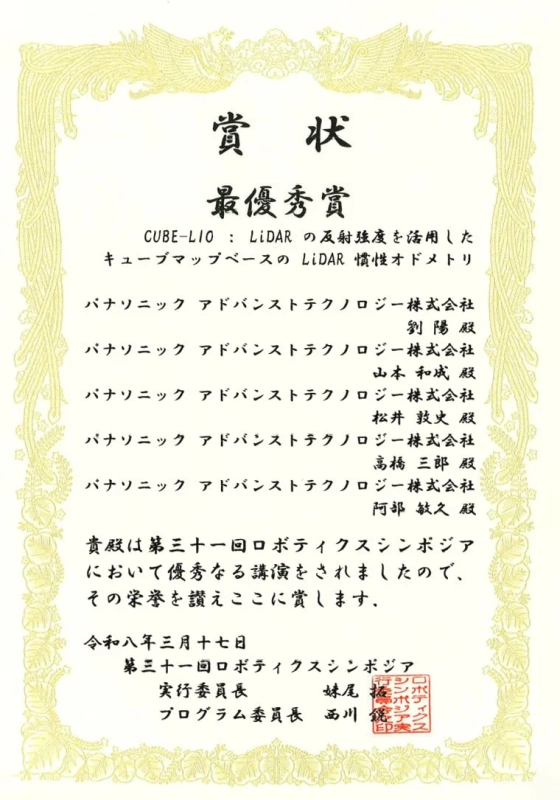 賞状
最優秀賞
CUBE-LIO : LiDAR の反射強度を活用した
キューブマップベースの LiDAR 慣性オドメトリ
パナソニック アドバンストテクノロジー株式会社
劉 陽 殿
パナソニック アドバンストテクノロジー株式会社
山本 和成 殿
パナソニック アドバンストテクノロジー株式会社
松井 敦史 殿
パナソニック アドバンストテクノロジー株式会社
高橋 三郎 殿
パナソニック アドバンストテクノロジー株式会社
阿部 敏久 殿
貴殿は第三十一回ロボティクスシンポジア
において優秀なる講演をされましたので、
その栄誉を讃えここに賞します.
令和八年三月十七日
第三十一回ロボティクスシンポジア
実行委員長 妹尾 拓
プログラム委員長 西川 鋭
ロボティクス
シンポジア実
行委員会印